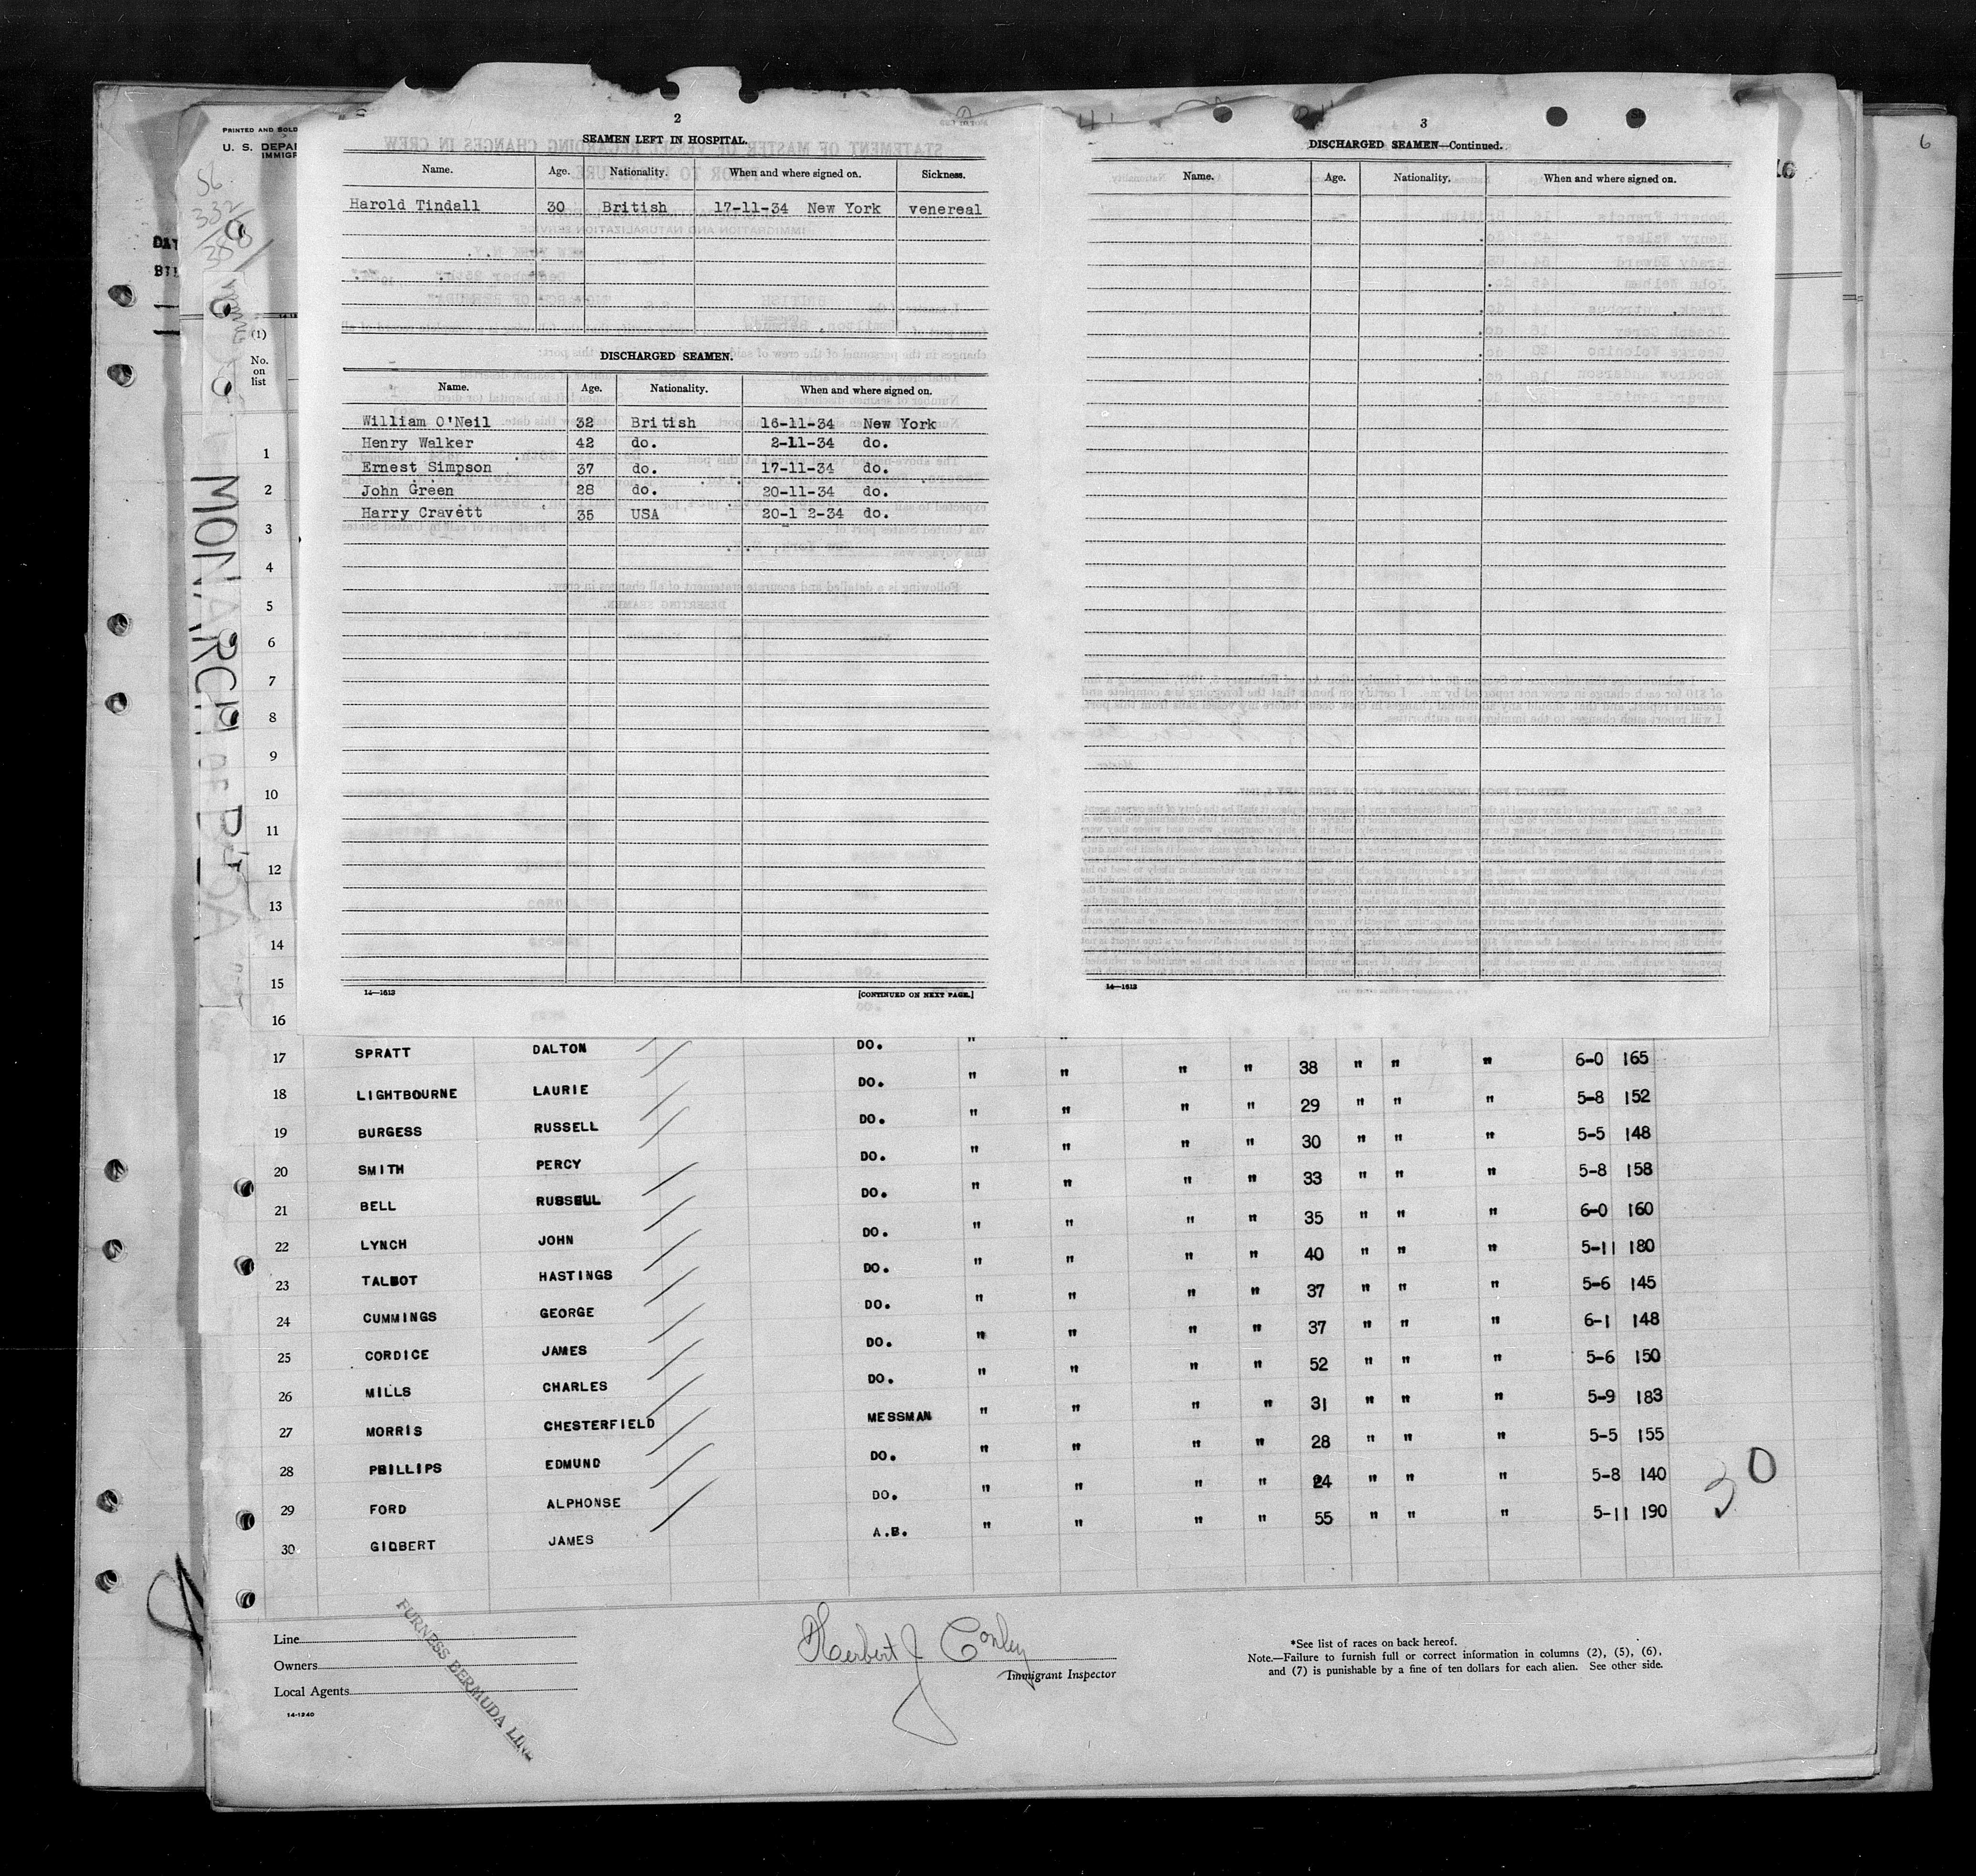 PRINTED AND SOLD
U. S. DEPA
IMMIGR
6
56
332
388
DAT
(1)
No.
on
list
MONARCH OF B'DA
2
SEAMEN LEFT IN HOSPITAL.
Name. Age. Nationality. When and where signed on. Sickness.
Harold Tindall 30 British 17-11-34 New York venereal
DISCHARGED SEAMEN.
Name. Age. Nationality. When and where signed on.
William O'Neil 32 British 16-11-34 New York
Henry Walker 42 do. 2-11-34 do.
Ernest Simpson 37 do. 17-11-34 do.
John Green 28 do. 20-11-34 do.
Harry Cravett 35 USA 20-1 2-34 do.
14—1613 [CONTINUED ON NEXT PAGE.]
3
DISCHARGED SEAMEN—Continued.
Name. Age. Nationality. When and where signed on.
14—1613
1
2
3
4
5
6
7
8
9
10
11
12
13
14
15
16
17 SPRATT DALTON DO. " " " " 38 " " " 6-0 165
18 LIGHTBOURNE LAURIE DO. " " " " 29 " " " 5-8 152
19 BURGESS RUSSELL DO. " " " " 30 " " " 5-5 148
20 SMITH PERCY DO. " " " " 33 " " " 5-8 158
21 BELL RUSSELL DO. " " " " 35 " " " 6-0 160
22 LYNCH JOHN DO. " " " " 40 " " " 5-11 180
23 TALBOT HASTINGS DO. " " " " 37 " " " 5-6 145
24 CUMMINGS GEORGE DO. " " " " 37 " " " 6-1 148
25 CORDICE JAMES DO. " " " " 52 " " " 5-6 150
26 MILLS CHARLES DO. " " " " 31 " " " 5-9 183
27 MORRIS CHESTERFIELD MESSMAN " " " " 28 " " " 5-5 155
28 PHILLIPS EDMUND DO. " " " " 24 " " " 5-8 140
29 FORD ALPHONSE DO. " " " " 55 " " " 5-11 190
30 GIDBERT JAMES A.B. " "
30
Line
Owners
Local Agents
14-1240
FURNESS BERMUDA LINE
Herbert J Conley
Immigrant Inspector
*See list of races on back hereof.
Note.—Failure to furnish full or correct information in columns (2), (5), (6),
and (7) is punishable by a fine of ten dollars for each alien. See other side.